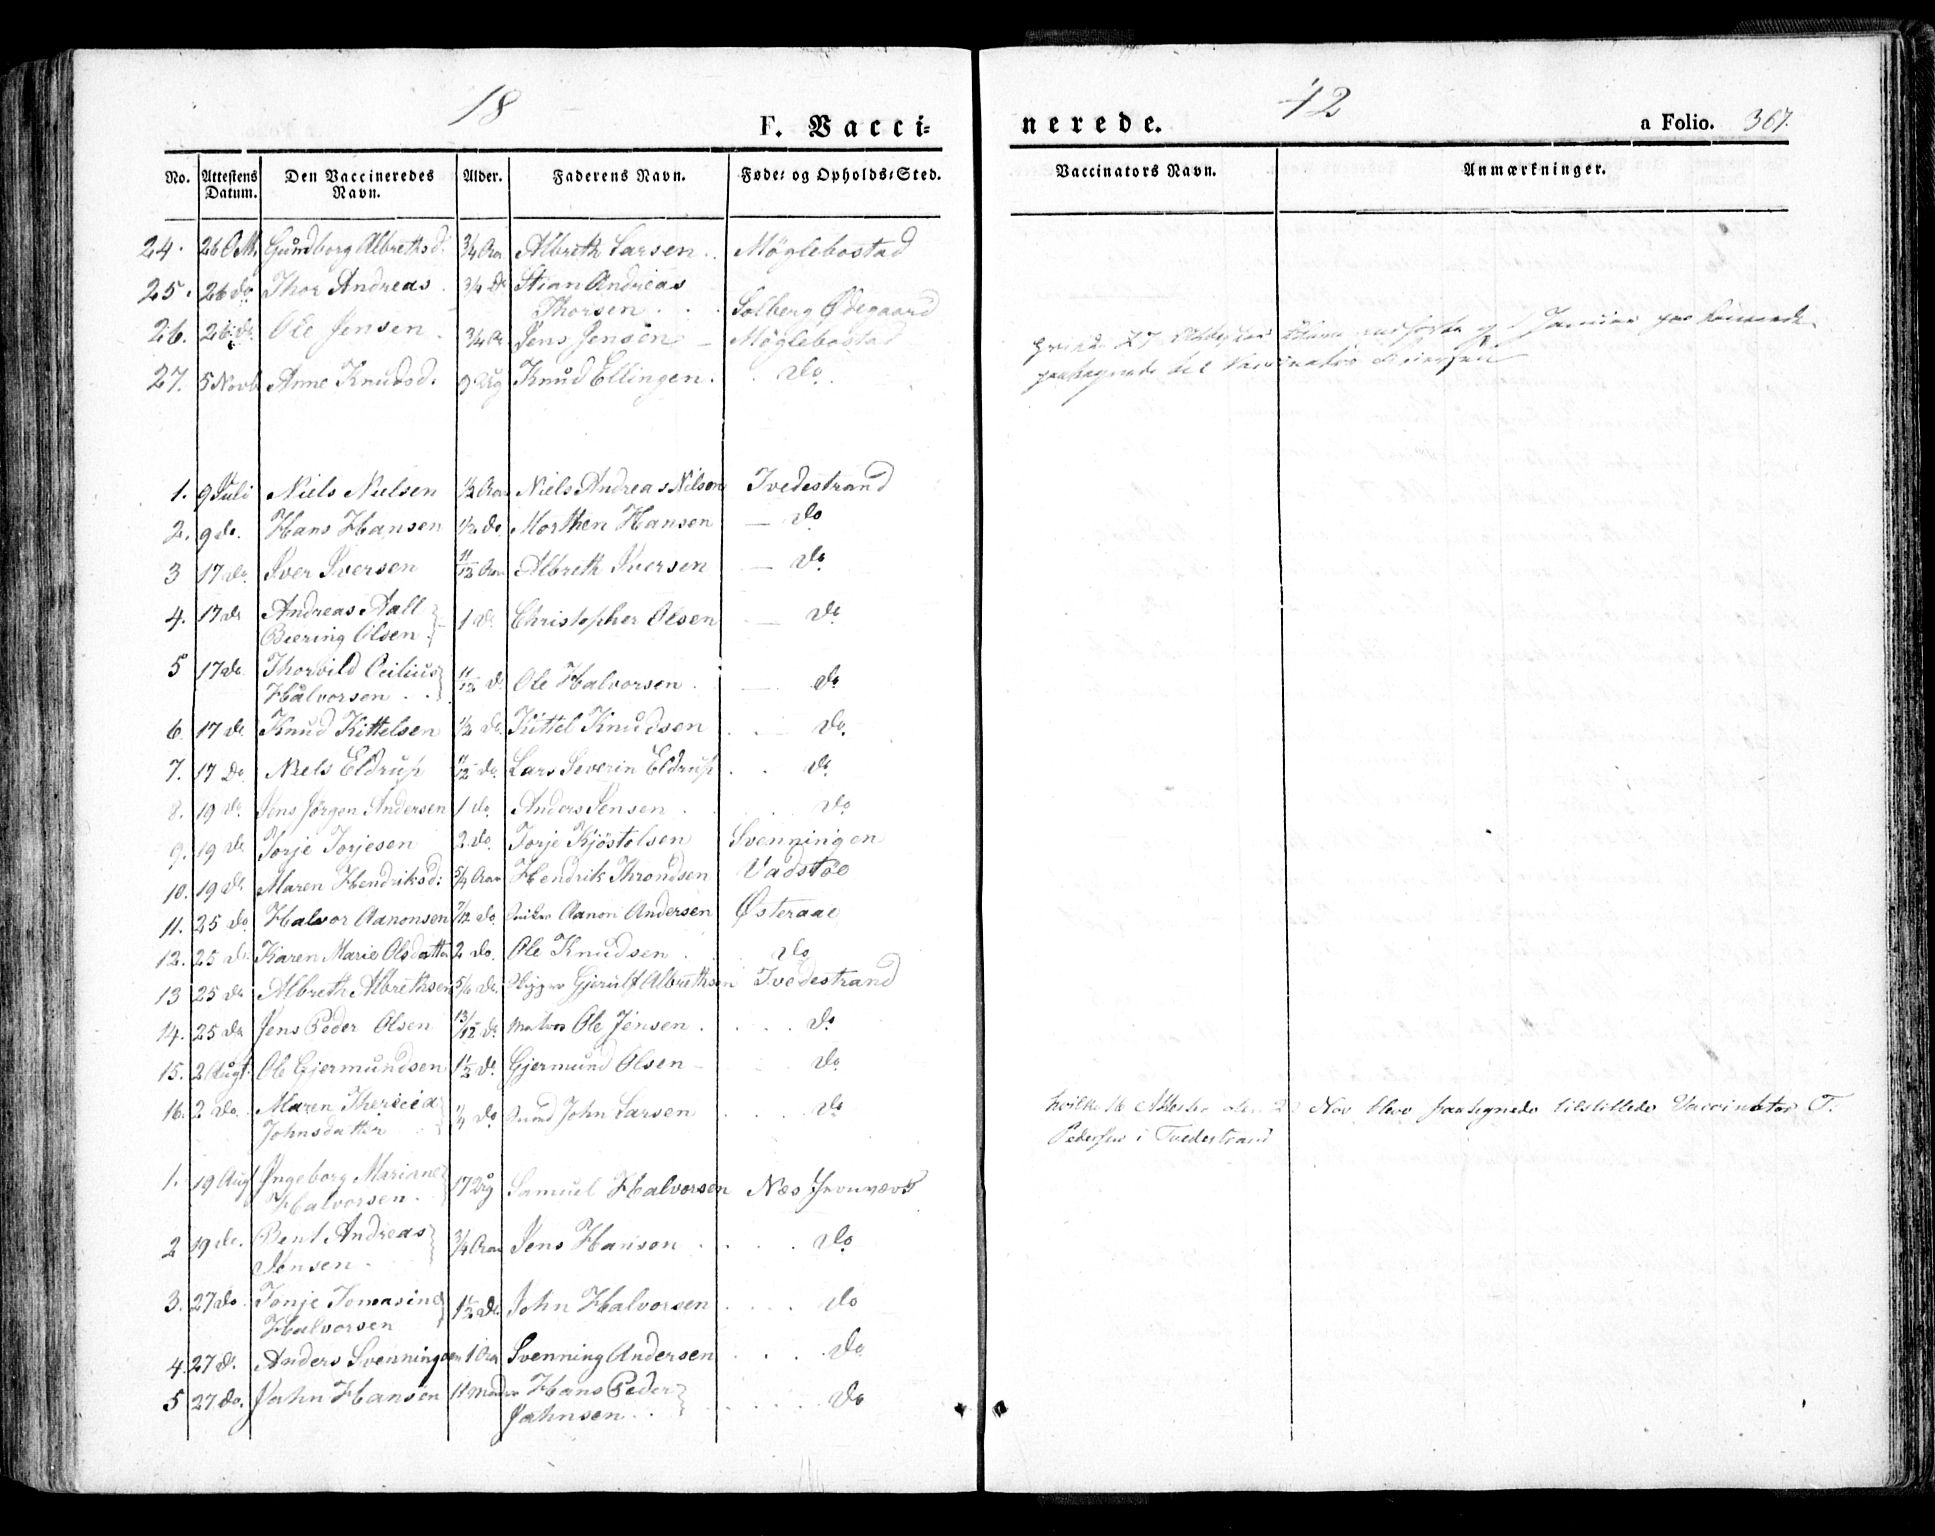 18 42
F. Vacci- nerede. a Folio. 367.
No. Attestens Datum. Den Vaccineredes Navn. Alder. Faderens Navn. Føde- og Opholds-Sted. Vaccinators Navn. Anmærkninger.
24. 26 Gundborg Albrethsd. 3/4 Aar Albreth Larsen Møglebostad
25. 26 do Thor Andreas 3/4 Do Stian Andreas
Thorsen Solberg Ødegaard
26. 26 do Ole Jensen 3/4 Jens Jensen Møglebostad
27. 5 Novb Anne Knudsd. 9 Knud Ellingen. Do
1. 9 Juli Niels Nielsen 1/2 Aar Niels Andreas Nilsen Tvedestrand
2. 9 do. Hans Hansen 1/2 do. Morthen Hansen — do
3 17 do. Iver Iversen 11/12 Aar Albreth Iversen — do
4. 17 do Andreas Aall
Biering Olsen 1 do Christopher Olsen — do
5 17 do Thorvild Ceilius
Halvorsen 11/12 do Ole Halvorsen — do
6 17 do Knud Kittelsen 1/2 do Kittel Knudsen do.
7. 17 Do Niels Eldrup 11/12 do. Lars Severin Eldrup do
8. 19 do Jens Jørgen Andersen 1 do Anders Jensen do
9. 19 do Torje Torjesen 2 do. Torje Kjøstolsen Svenningen
10. 19 do Maren Hendriksd: 5/4 Aar Hendrik Throndsen Vadstøe
11. 25 do Halvor Aanonsen 7/12 do Aanon Andersen Østeraae
12. 25 do Karen Marie Olsdatter 2 do. Ole Knudsen do
13 25 do Albreth Albrethsen 5/6 do Gjerulf Albrethsen Tvedestrand
14. 25 do Jens Peder Olsen 13/12 do Matros Ole Jensen do
15. 2 Augt. Ole Gjermundsen 1 1/2 do Gjermund Olsen do
16. 2 do. Maren Thericia
Johnsdatter do John Larsen do
hvilke 16 Nov blev tilstillede Vaccinator T.
Pedersen i Tvedestrand
1. 19 Aug Ingeborg Marianne
Halvorsen. 17 Samuel Halvorsen Næs Jernværk
2 19 do. Bent Andreas
Jensen 3/4 Aar Jens Hansen do
3. 27 do Tonje Tomasine
Halvorsen 1 1/2 do John Halvorsen do
4 27 do. Anders Svenningsen 1 Aar Svenning Andersen do
5 27 do. Jahn Hansen 11 Hans Peder
Jahnsen do